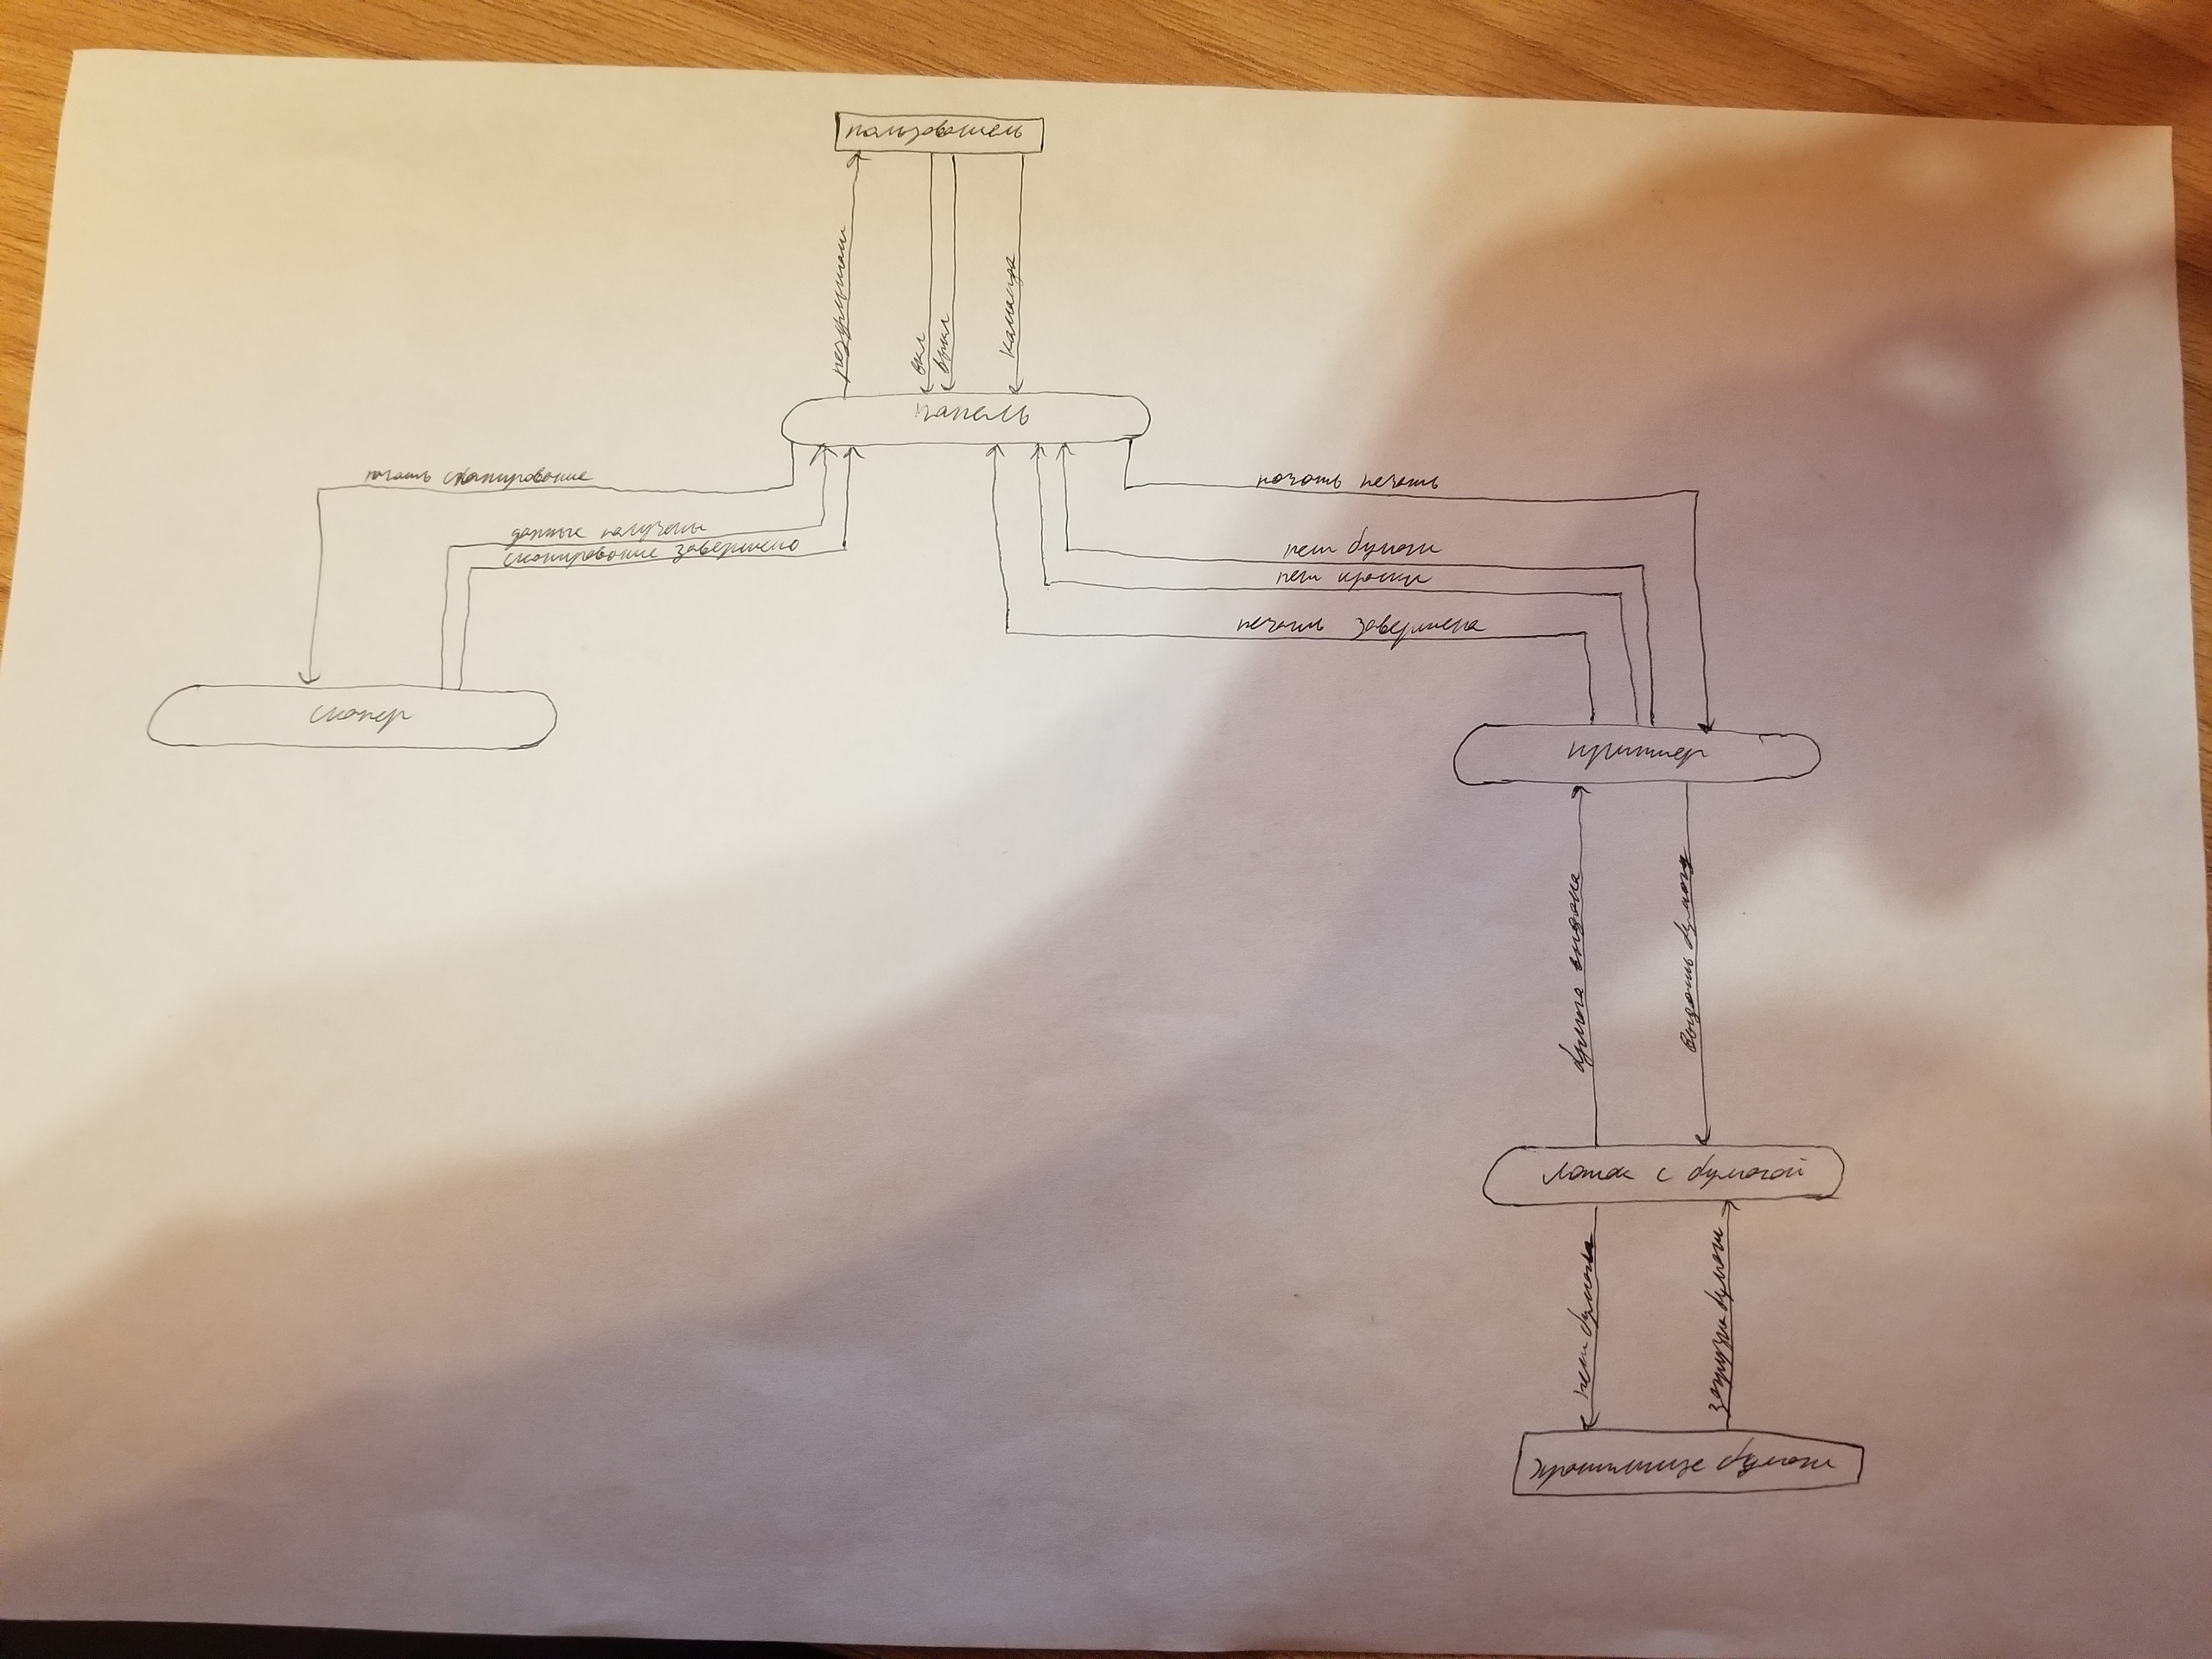 пользователь
результат
вкл
выкл
команда
панель
начать сканирование
данные получены
сканирование завершено
начать печать
нет бумаги
нет краски
печать завершена
сканер
принтер
бумага выдана
выдать бумагу
лоток с бумагой
нет бумаги
загрузка бумаги
хранилище бумаги